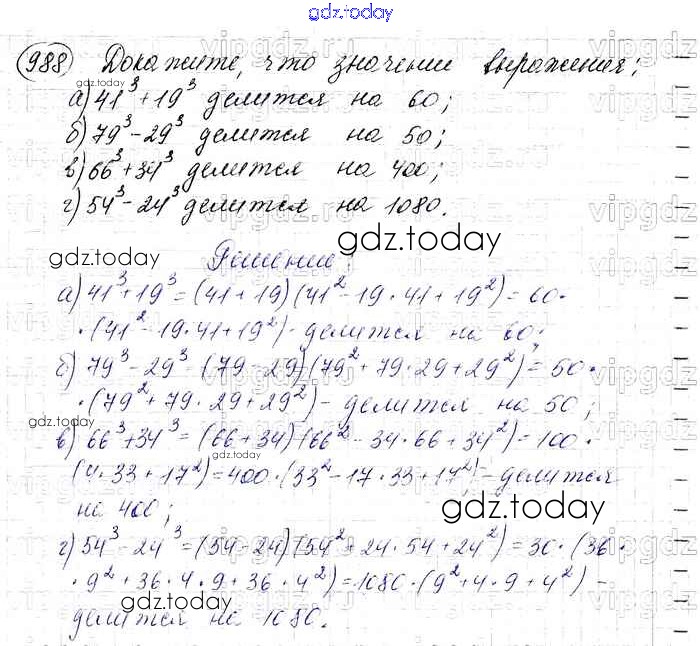 gdz.today
988 Докажите, что значении выражения:
а) 41³ + 19³ делится на 60;
б) 79³ - 29³ делится на 50;
в) 66³ + 34³ делится на 400;
г) 54³ - 24³ делится на 1080.
gdz.today
gdz.today
Решение:
а) 41³ + 19³ = (41 + 19)(41² - 19·41 + 19²) = 60·
·(41² - 19·41 + 19²) - делится на 60;
б) 79³ - 29³ = (79 - 29)(79² + 79·29 + 29²) = 50·
·(79² + 79·29 + 29²) - делится на 50;
в) 66³ + 34³ = (66 + 34)(66² - 34·66 + 34²) = 100·
(4·33 + 17²) = 400·(33² - 17·33 + 17²) - делится
на 400;
г) 54³ - 24³ = (54 - 24)(54² + 24·54 + 24²) = 30·(36·
·9² + 36·4·9 + 36·4²) = 1080·(9² + 4·9 + 4²) -
делится на 1080.
gdz.today
gdz.today
gdz.today
gdz.today